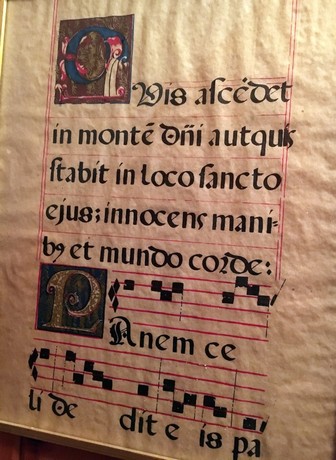 Quis ascēdet
in montē dñi aut quis
stabit in loco sancto
ejus; innocens mani-
b9 et mundo corde:
Panem ce
li de dit e is pa